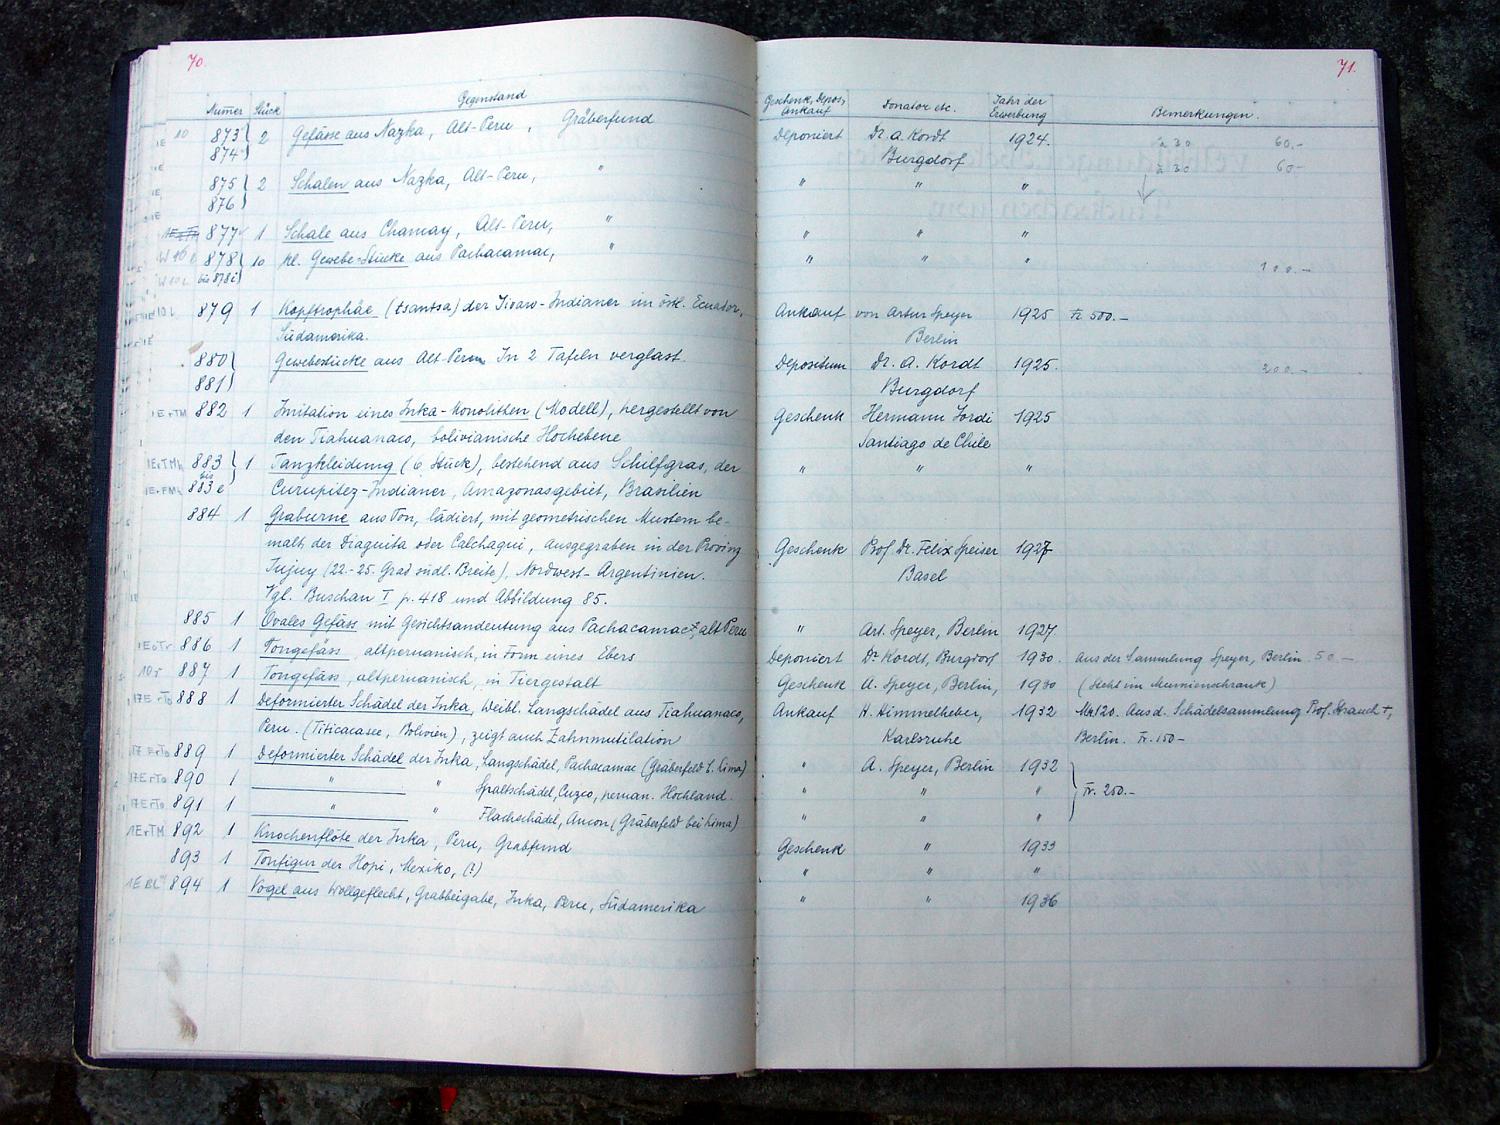 70.
Numer Stück Gegenstand
10 873 2 Gefässe aus Nazka, Alt-Peru, Gräberfund
874
875 2 Schalen aus Nazka, Alt-Peru, "
876
877 1 Schale aus Chancay, Alt-Peru, "
878 10 kl. Gewebe-Stücke aus Pachacamac, "
bis 878i
879 1 Kopftrophäe (tsantsa) der Jivaro-Indianer im östl. Ecuador,
Südamerika.
880 Gewebestücke aus Alt-Peru In 2 Tafeln verglast.
881
1ErTM 882 1 Imitation eines Inka-Monolithen (Modell), hergestellt von
den Tiahuanaco, bolivianische Hochebene
883 1 Tanzkleidung (6 Stück), bestehend aus Schilfgras, der
bis
883e Curupitez-Indianer, Amazonasgebiet, Brasilien
884 1 Graburne aus Ton, lädiert, mit geometrischen Mustern be-
malt, der Diaguita oder Calchaqui, ausgegraben in der Provinz
Jujuy (22.-25. Grad südl. Breite), Nordwest-Argentinien.
Vgl. Buschan I p. 418 und Abbildung 85.
885 1 Ovales Gefäss mit Gesichtsandeutung aus Pachacamac, alt Peru
886 1 Tongefäss, altperuanisch, in Form eines Ebers
887 1 Tongefäss, altperuanisch, in Tiergestalt
888 1 Deformierter Schädel der Inka, Weibl. Langschädel aus Tiahuanaco,
Peru. (Titicacasee, Bolivien), zeigt auch Zahnmutilation
889 1 Deformierter Schädel der Inka, Langschädel, Pachacamac (Gräberfeld b. Lima)
890 1 " " Spaltschädel, Cuzco, peruan. Hochland.
891 1 " " Flachschädel, Ancon (Gräberfeld bei Lima)
1ErTM 892 1 Knochenflöte der Inka, Peru, Grabfund
893 1 Tonfigur der Hopi, Mexiko, (?)
894 1 Vogel aus Wollgeflecht, Grabbeigabe, Inka, Peru, Südamerika
71.
Geschenk, Depos, Ankauf Donator etc. Jahr der Erwerbung Bemerkungen.
Deponiert Dr. A. Kordt 1924. à 30 60.-
Burgdorf à 30 60.-
" " "
" " "
" " " 100.-
Ankauf von Artur Speyer 1925 Fr. 500.-
Berlin
Depositum Dr. A. Kordt 1925. 200.-
Burgdorf
Geschenk Hermann Jordi 1925
Santiago de Chile
" " "
Geschenk Prof. Dr. Felix Speiser 1927
Basel
" Art. Speyer, Berlin 1927.
Deponiert Dr Kordt, Burgdorf 1930. Aus der Sammlung Speyer, Berlin. 50.-
Geschenk A. Speyer, Berlin, 1930 (Steht im Mumienschrank)
Ankauf H. Himmelheber, 1932 Mk 120. Aus d. Schädelsammlung Prof. Strauch †,
Karlsruhe Berlin. Fr. 150-
" A. Speyer, Berlin 1932
" " " Fr. 250.-
" " "
Geschenk " 1933
" " "
" " 1936